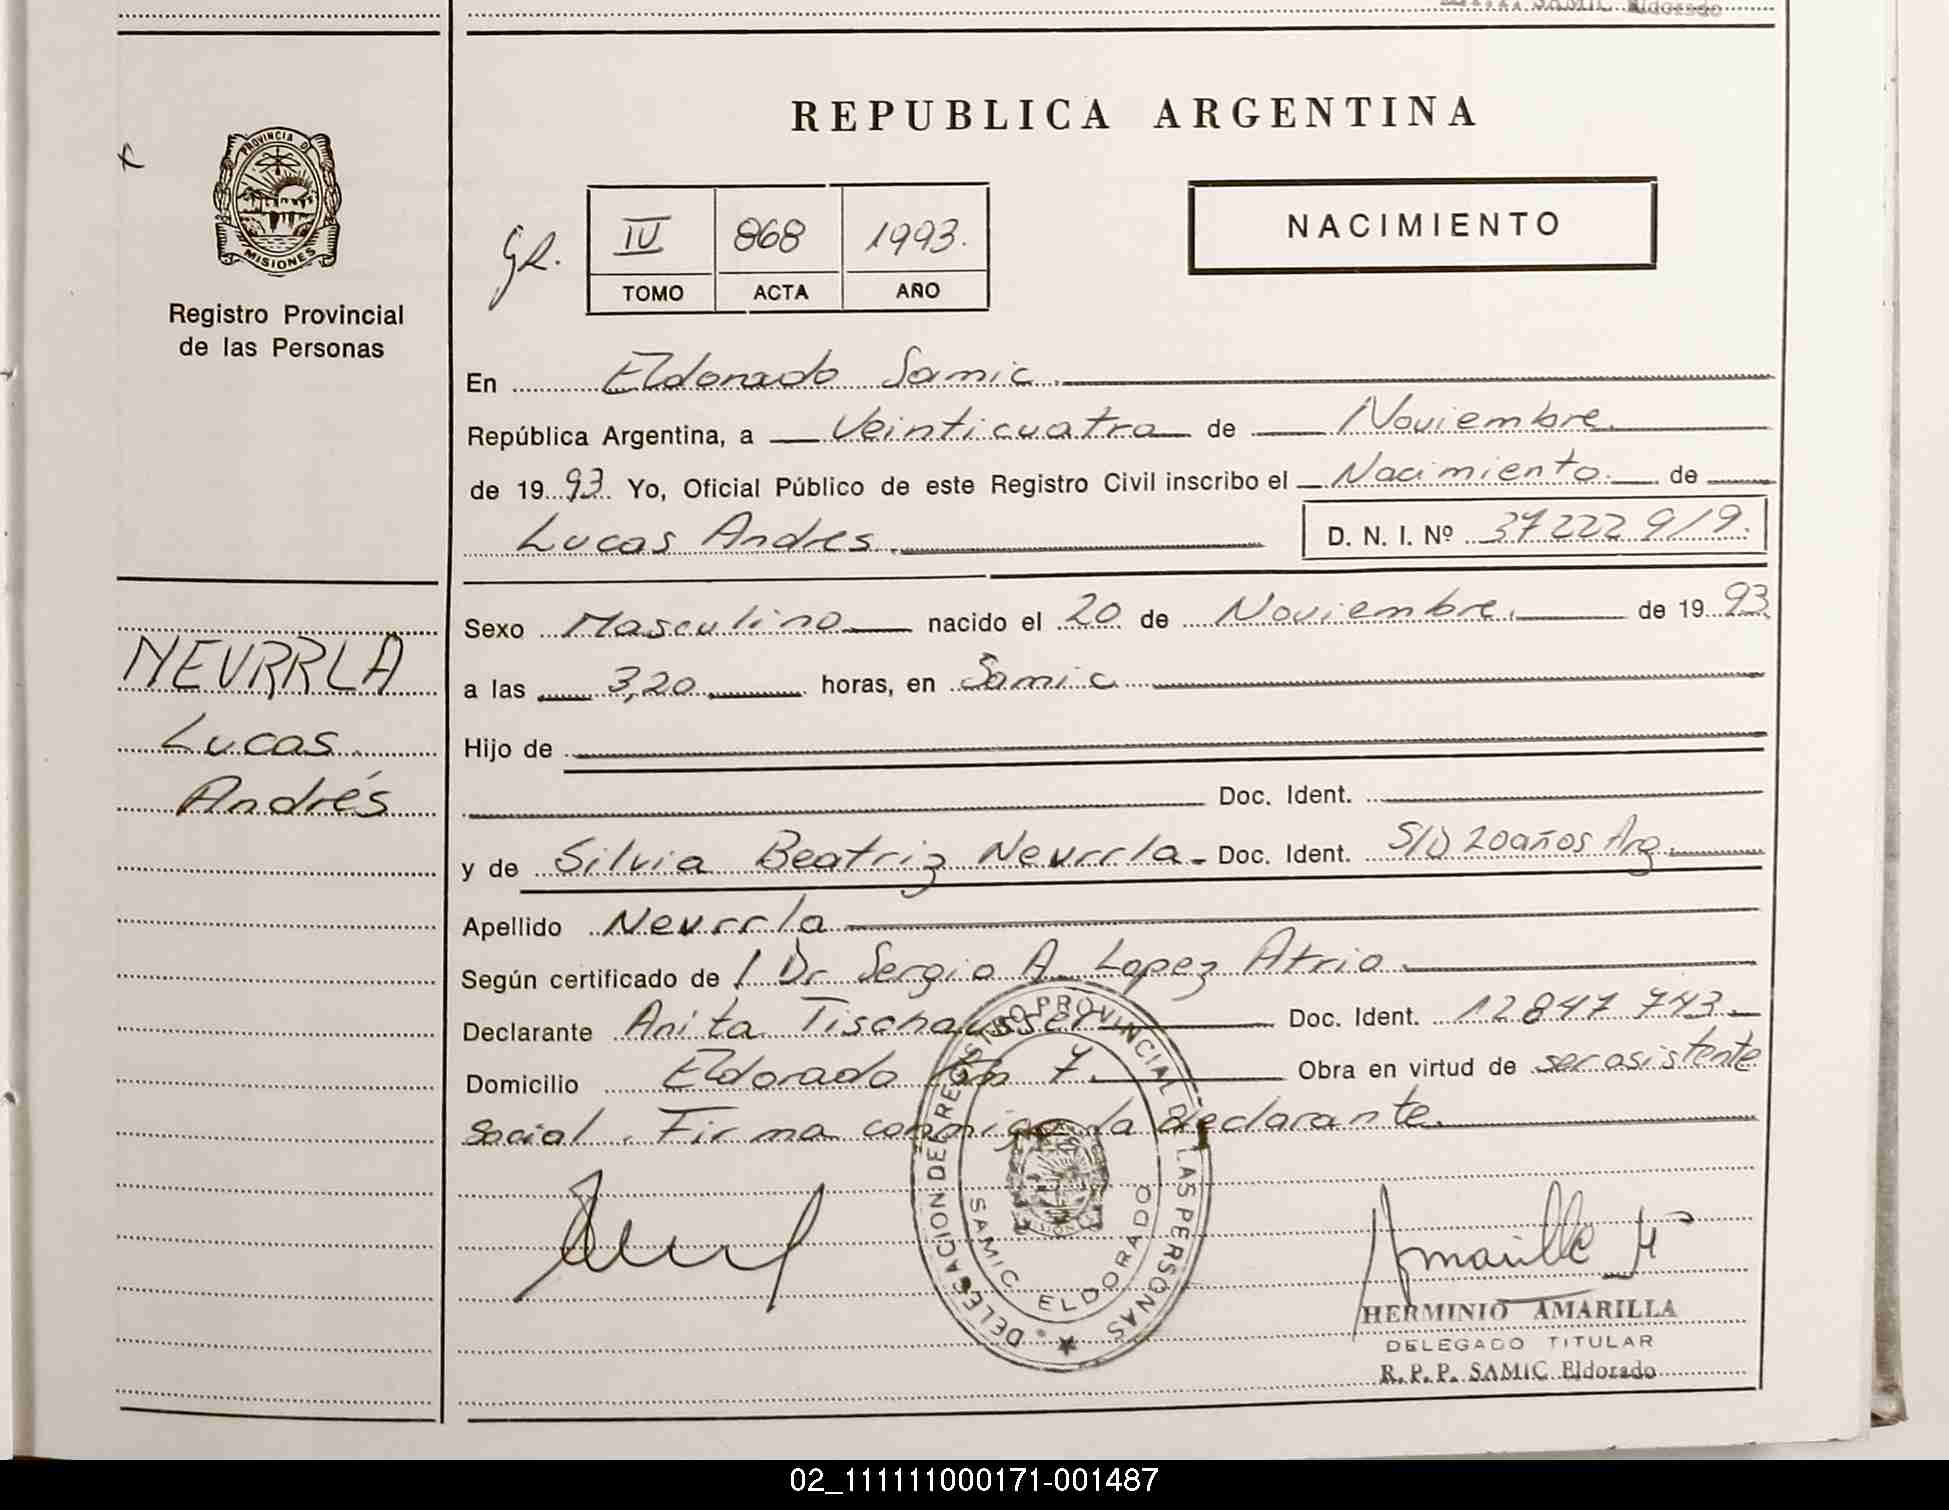 SAMIC Eldorado
REPUBLICA ARGENTINA
PROVINCIA D
MISIONES
Registro Provincial
de las Personas
IV 868 1993.
TOMO ACTA AÑO
NACIMIENTO
En Eldorado Samic.
República Argentina, a Veinticuatro de Noviembre.
de 1993. Yo, Oficial Público de este Registro Civil inscribo el Nacimiento. de
Lucas Andres. D. N. I. Nº 37 222 919.
NEVRRLA
Lucas
Andrés
Sexo Masculino nacido el 20 de Noviembre. de 1993
a las 3,20 horas, en Samic
Hijo de
Doc. Ident.
y de Silvia Beatriz Nevrrla. Doc. Ident. S/D 20años Arg.
Apellido Nevrrla
Según certificado de / Dr Sergio A. Lopez Atrio.
Declarante Anita Tischausser Doc. Ident. 12847 743.
Domicilio Eldorado Km 7. Obra en virtud de ser asistente
social. Firma conmigo la declarante.
DELEGACION DEL REGISTRO PROVINCIAL DE LAS PERSONAS
SAMIC ELDORADO
HERMINIO AMARILLA
DELEGADO TITULAR
R. P. P. SAMIC Eldorado
02_111111000171-001487